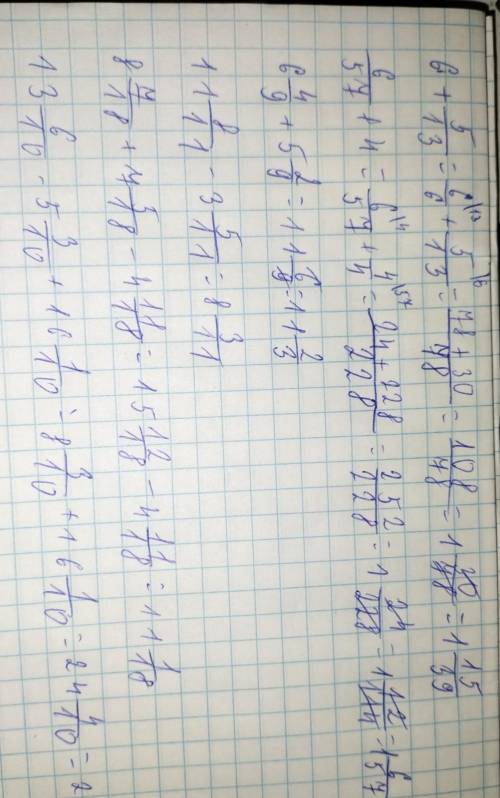 6 + 5/13 = 6/6 \13 + 5/13 \6 = 78+30/78 = 108/78 = 1 30/78 = 1 15/39
6/57 + 4 = 6/57 \4 + 4/4 \57 = 24+228/228 = 252/228 = 1 24/228 = 1 12/114 = 1 6/57
6 4/9 + 5 2/9 = 11 6/9 = 11 2/3
11 8/11 - 3 5/11 = 8 3/11
8 7/18 + 7 5/18 - 4 11/18 = 15 12/18 - 4 11/18 = 11 1/18
13 6/10 - 5 3/10 + 16 1/10 = 8 3/10 + 16 1/10 = 24 4/10 = 2